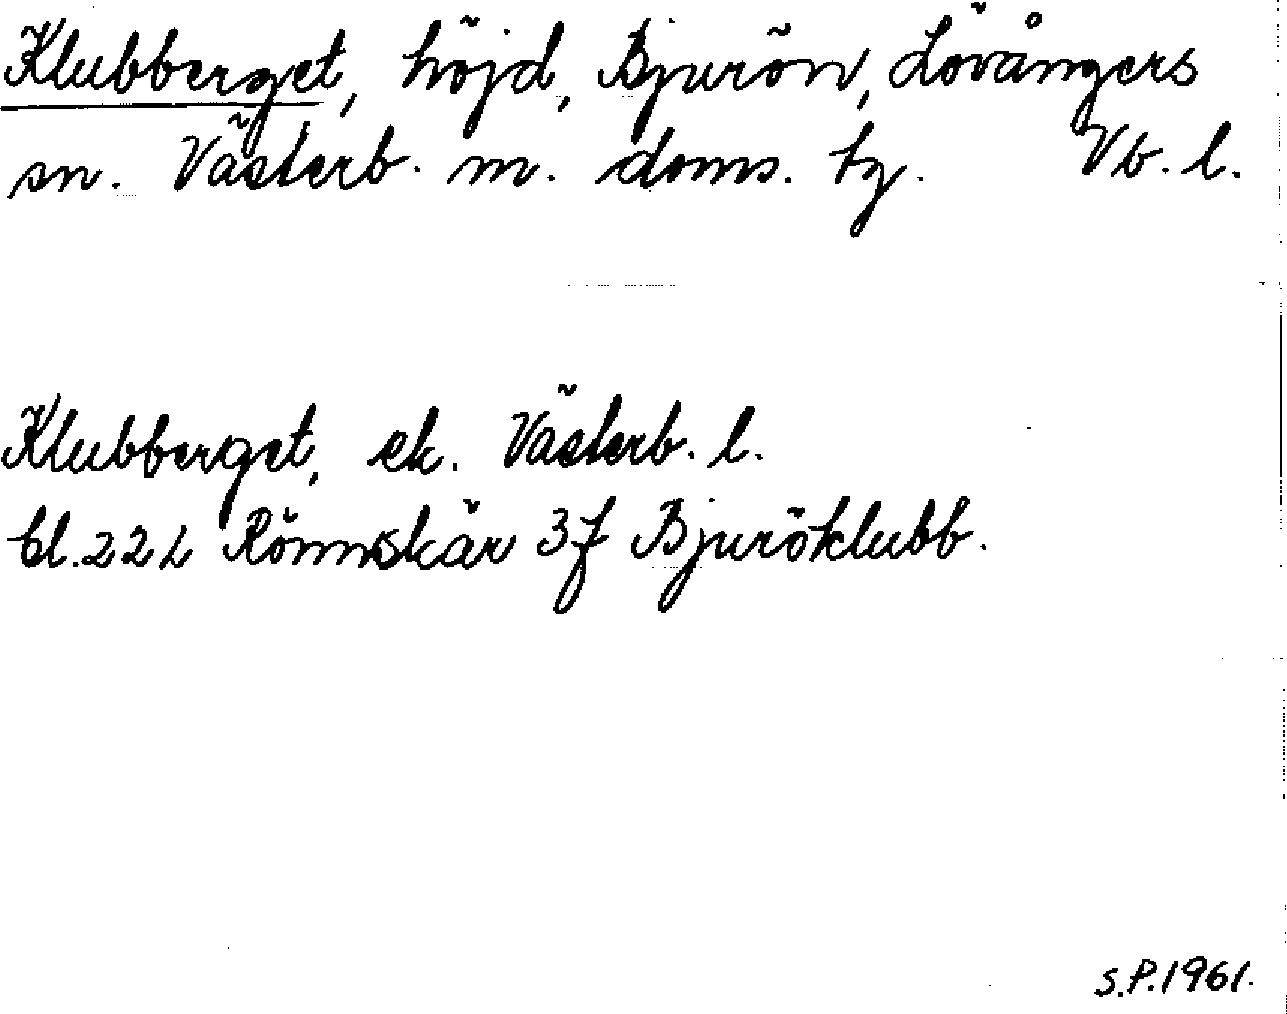 Klubberget, höjd, Bjurön, Lövångers
sn. Västerb. m. doms. tg. Vb. l.
Klubberget, ek. Västerb. l.
bl. 22 L Rönnskär 3f Bjuröklubb.
S.P. 1961.